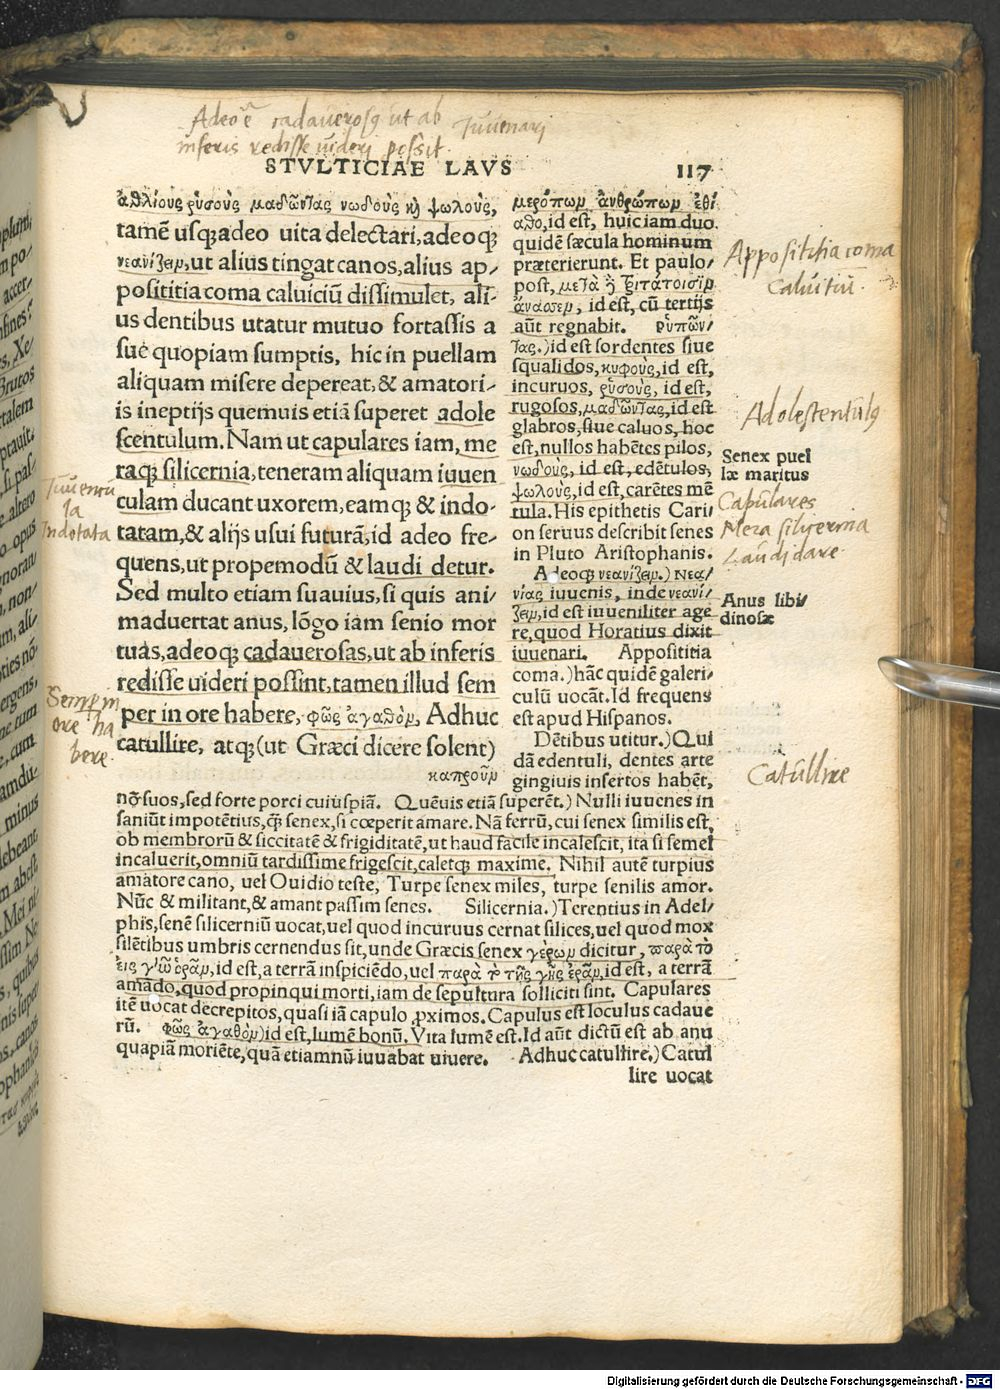 Adeo ē cadaverosꝰ ut ab Iuuenari
inferis redisse uideri possit.
STVLTICIAE LAVS 117
ἀθλίους ῥυσοὺς μαδῶντας νωδοὺς κỳ ψωλοὺς,
tamē usq̨ adeo uita delectari, adeoq̨
νεανίζειμ, ut alius tingat canos, alius ap⸗
posititia coma caluiciū dissimulet, ali⸗
us dentibus utatur mutuo fortassis a
sue quopiam sumptis, hic in puellam
aliquam misere depereat, & amatori⸗
is ineptijs quemuis etiā superet adole
scentulum. Nam ut capulares iam, me
raq̨ silicernia, teneram aliquam iuuen
culam ducant uxorem, eamq̨ & indo⸗
tatam, & alijs usui futurā, id adeo fre⸗
quens, ut propemodū & laudi detur.
Sed multo etiam suauius, si quis ani⸗
maduertat anus, lōgo iam senio mor
tuas, adeoq̨ cadauerosas, ut ab inferis
redisse uideri possint, tamen illud sem
per in ore habere, φῶς ἀγαθὸμ, Adhuc
catullire, atq̨ (ut Græci dicere solent)
καπροῦμ
μερόπωμ ἀνθρώπωμ ἐθί
αθο, id est, huic iam duo
quidē sæcula hominum
præterierunt. Et paulo/
post, μετὰ ἢ τριτάτοισιμ
ἄνασσεμ, id est, cū tertijs
aūt regnabit. ῥυπῶν/
τας.) id est sordentes siue
squalidos, κυφοὺς, id est,
incuruos, ῥυσοὺς, id est,
rugosos, μαδῶντας, id est
glabros, siue caluos, hoc
est, nullos habētes pilos,
νωδοὺς, id est, edētulos,
ψωλοὺς, id est, carētes mē
tula. His epithetis Cari/
on seruus describit senes
in Pluto Aristophanis.
Adeoq̨ νεανίζειμ.) Νεα/
νίας iuuenis, inde νεανί/
ζειμ, id est iuueniliter age
re, quod Horatius dixit
iuuenari. Apposititia
coma.) hāc quidē galeri/
culū uocāt. Id frequens
est apud Hispanos.
Dētibus utitur.) Qui
dā edentuli, dentes arte
gingiuis insertos habēt,
nō suos, sed forte porci cuiuspiā. Quēuis etiā superēt.) Nulli iuuenes in
saniūt impotētius, q̄ senex, si cœperit amare. Nā ferrū, cui senex similis est,
ob membrorū & siccitatē & frigiditatē, ut haud facile incalescit, ita si semel
incaluerit, omniū tardissime frigescit, caletq̨ maxime. Nihil autē turpius
amatore cano, uel Ouidio teste, Turpe senex miles, turpe senilis amor.
Nūc & militant, & amant passim senes. Silicernia.) Terentius in Adel/
phis, senē silicerniū uocat, uel quod incuruus cernat silices, uel quod mox
silētibus umbris cernendus sit, unde Græcis senex γέρωμ dicitur, παρὰ τὸ
εἰς γῆν ὁρᾶμ, id est, a terrā inspiciēdo, uel παρὰ τὸ τῆς γῆς ἐρᾶμ, id est, a terrā
amādo, quod propinqui morti, iam de sepultura solliciti sint. Capulares
itē uocat decrepitos, quasi iā capulo ꝓximos. Capulus est loculus cadaue
rū. φῶς ἀγαθὸμ) id est, lumē bonū. Vita lumē est. Id aūt dictū est ab anu
quapiā moriēte, quā etiamnū iuuabat uiuere. Adhuc catullire.) Catul
lire uocat
Apposititia coma
Caluitiū.
Adolescentulꝰ
Senex puel
læ maritus
Capulares
Mera silicernia
Laudi dare.
Anus libi/
dinosæ
Catullire
Iuuencu
la
Indotata
Semp in
ore ha
bere.
Digitalisierung gefördert durch die Deutsche Forschungsgemeinschaft - DFG